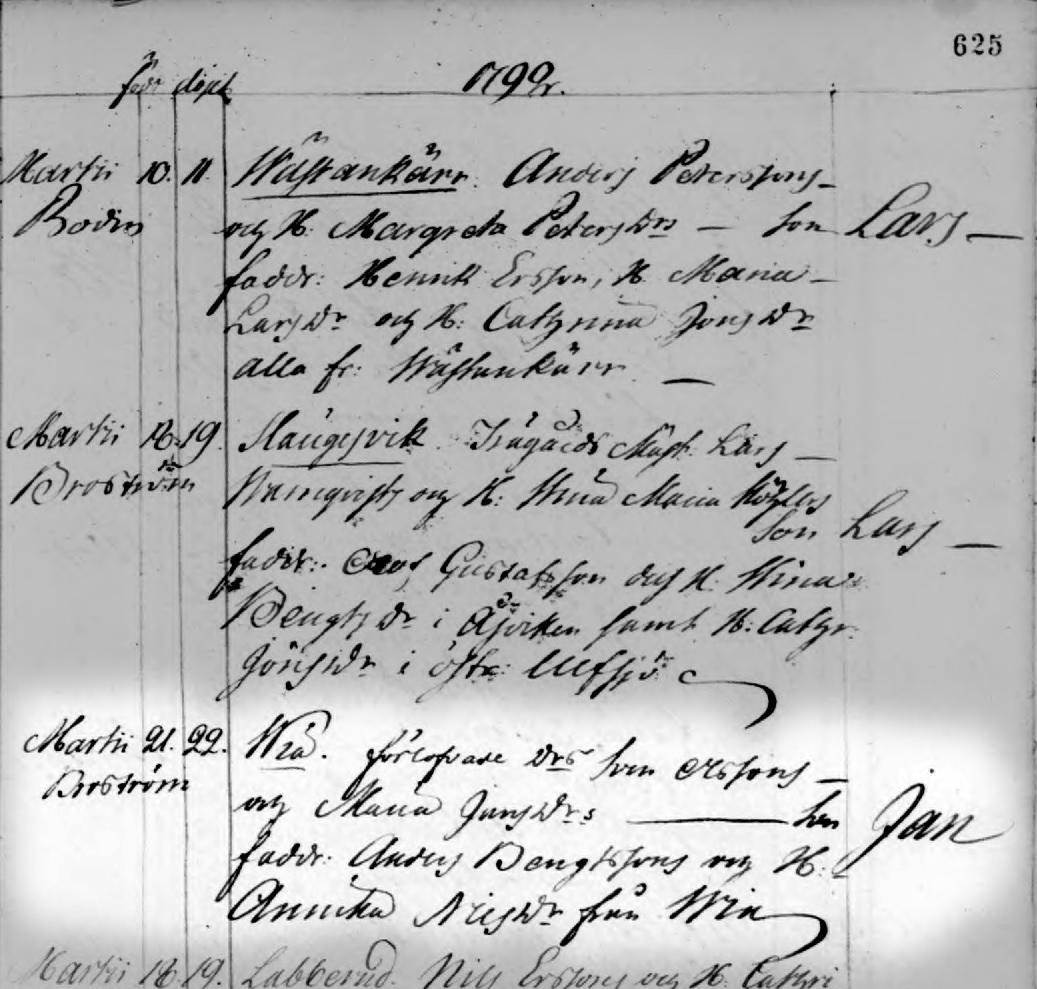 625
född döpt 1790.
Martii 10. 11. Wästankärr. Anders Peterssons
Bodin och H. Margreta Petersdrs son Lars
faddr: Henrik Ersson, H. Maria
Larsdr och H: Cathrina Jonsdr
alla fr: Wästankärr
Martii 18. 19. Slängsvik Trägårds Mäst. Lars
Broström och H: Stina Maria
son Lars
faddr: Olof Gustafsson och H. Stina
Bengtsdr i Åsviken samt H: Cathr.
Jönsdr i östr: Ullfsjö
Martii 21. 22. Wia. förlofvade Drs Sven Erssons
Broström och Maria Jansdrs son Jan
faddr: Anders Bengtssons och H:
Annika Nilsdr från Wia
Martii 18. 19. Labberud. Nils Erssons och H. Cathri